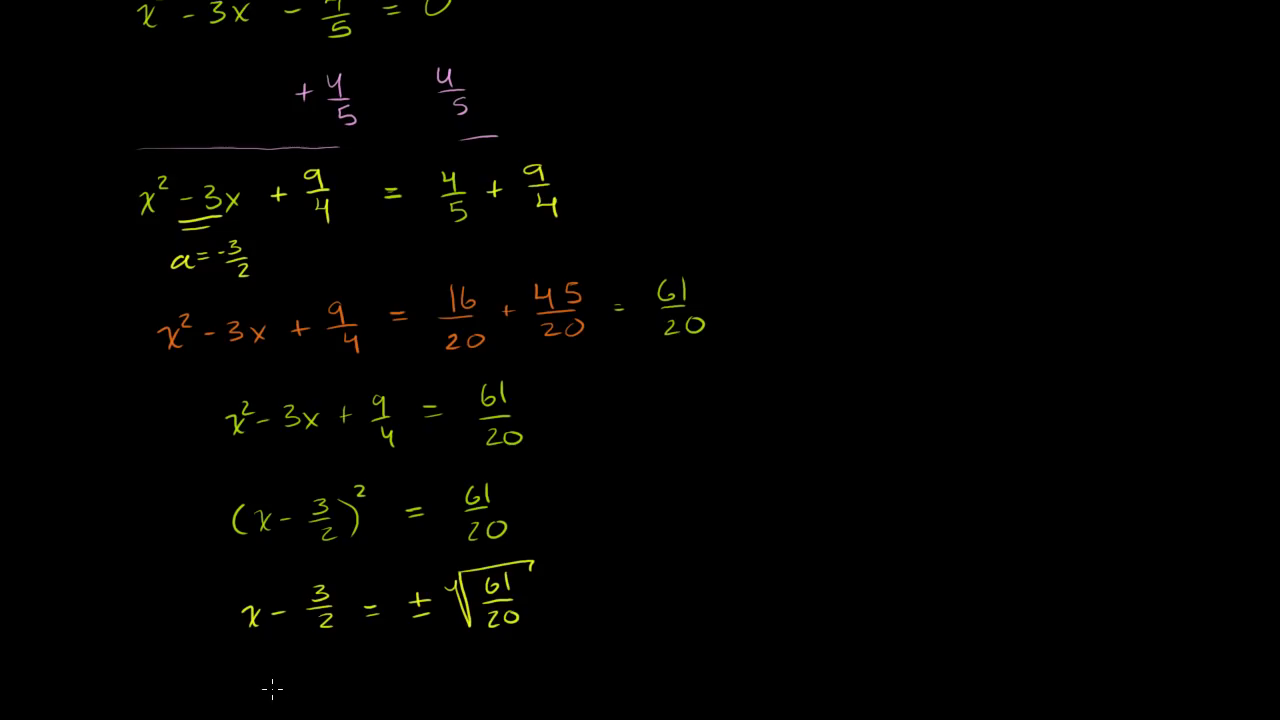 x² - 3x - 4/5 = 0
+ 4/5   4/5
x² - 3x + 9/4 = 4/5 + 9/4
a = -3/2
x² - 3x + 9/4 = 16/20 + 45/20 = 61/20
x² - 3x + 9/4 = 61/20
(x - 3/2)² = 61/20
x - 3/2 = ± √(61/20)